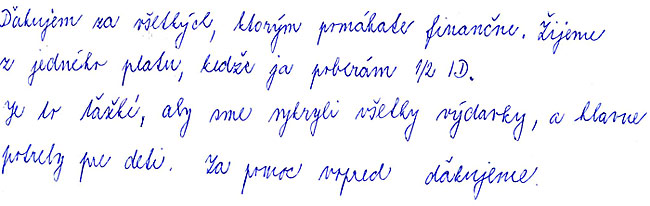 Ďakujem za všetkých, ktorým pomáhate finančne. Žijeme
z jedného platu, kedže ja poberám 1/2 I.D.
Je to tăžké, aby sme vykryli všetky výdavky, a hlavne
potreby pre deti. Za pomoc vopred ďakujeme.